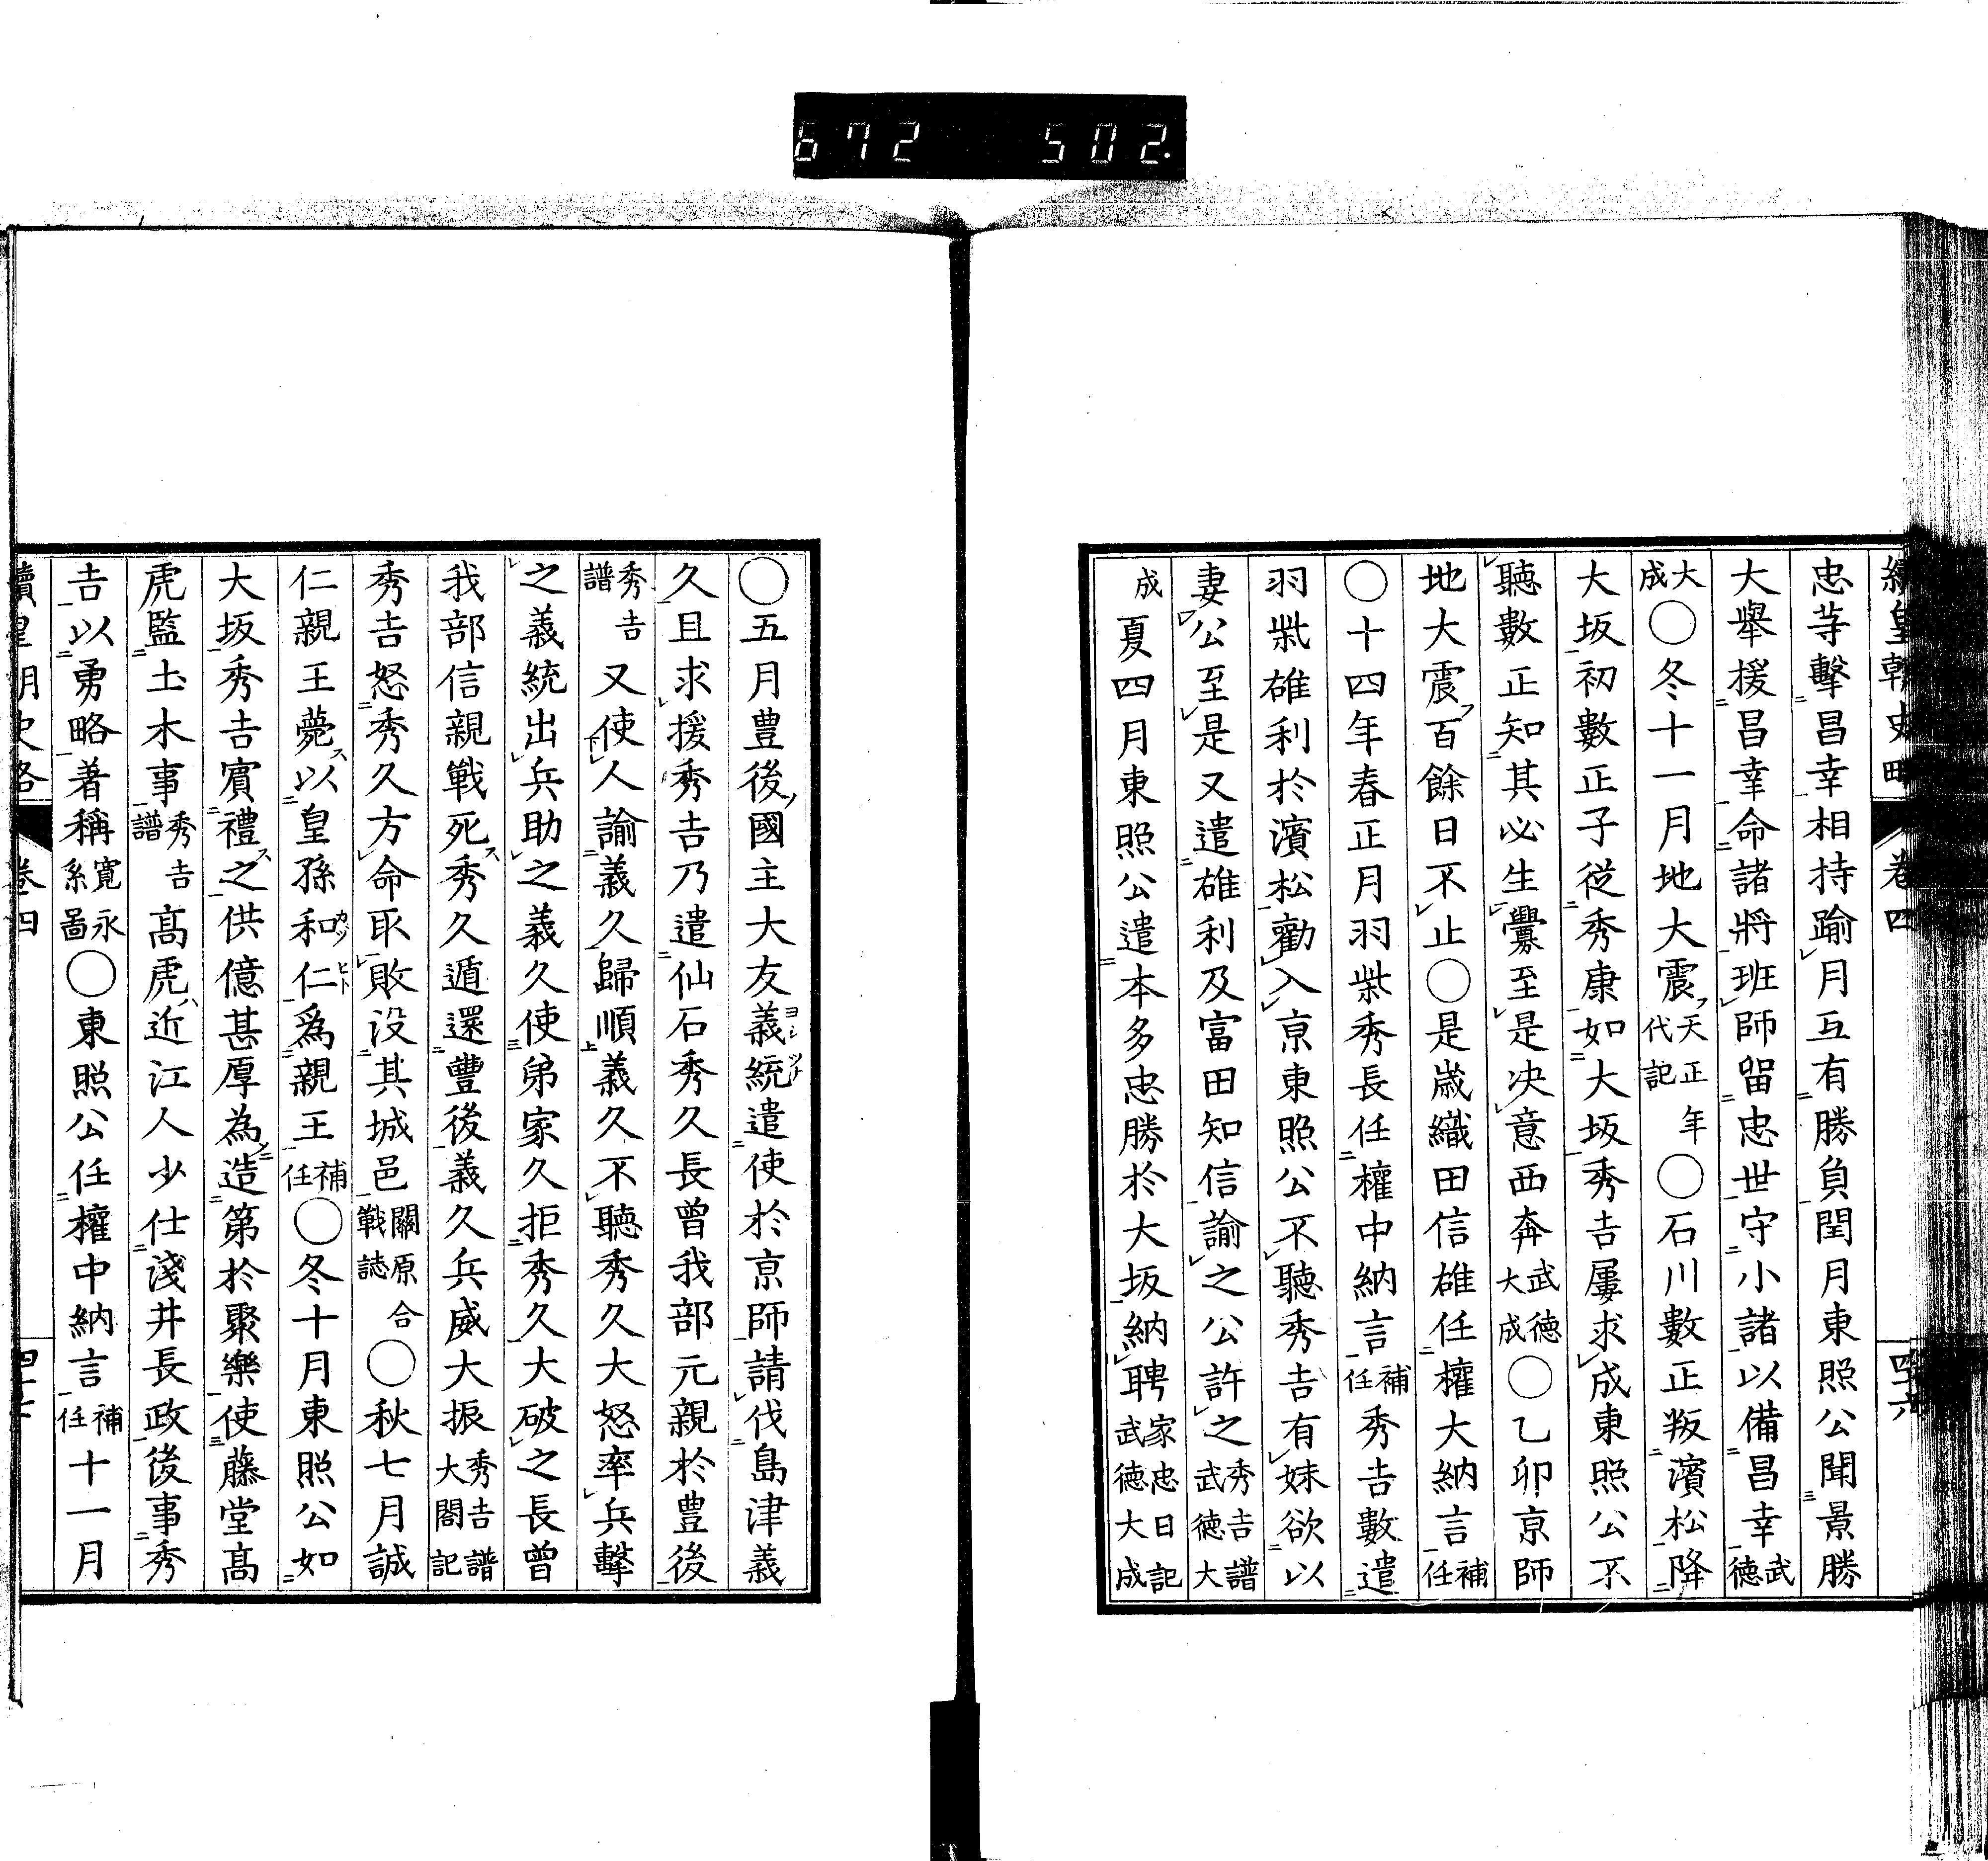 672 502.
續皇朝史略 卷四 四十六
忠等擊昌幸相持踰月互有勝負閏月東照公聞景勝
大擧援昌幸命諸將班師留忠世守小諸以備昌幸武德
大成〇冬十一月地大震天正年代記〇石川數正叛濱松降
大坂初數正子從秀康如大坂秀吉屢求成東照公不
聽數正知其必生釁至是决意西奔武德大成〇乙卯京師
地大震百餘日不止〇是歲織田信雄任權大納言補任
〇十四年春正月羽柴秀長任權中納言補任秀吉數遣
羽柴雄利於濱松勸入京東照公不聽秀吉有妹欲以
妻公至是又遣雄利及富田知信諭之公許之秀吉譜武德大
成夏四月東照公遣本多忠勝於大坂納聘家忠日記武德大成
〇五月豊後ノ國主大友義統ヨシツナ遣使於京師請伐島津義
久且求援秀吉乃遣仙石秀久長曾我部元親於豊後
秀吉譜又使人諭義久歸順義久不聽秀久大怒率兵擊
之義統出兵助之義久使弟家久拒秀久大破之長曾
我部信親戰死ス秀久遁還豐後義久兵威大振秀吉譜大閤記
秀吉怒秀久方命取敗没其城邑關原合戰誌〇秋七月誠
仁親王薨ス以皇孫和仁カツヒト爲親王補任〇冬十月東照公如
大坂秀吉賓禮ス之供億甚厚為メニ造第於聚樂使藤堂高
虎監土木事秀吉譜高虎ハ近江人少仕淺井長政後事秀
吉以勇略著稱寛永系圖〇東照公任權中納言補任十一月
續皇朝史略 卷四 四十七